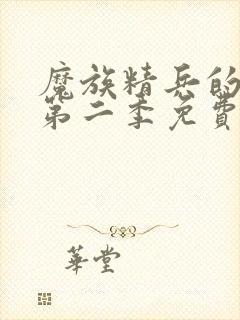 魔族精兵的
第二季免費
華堂